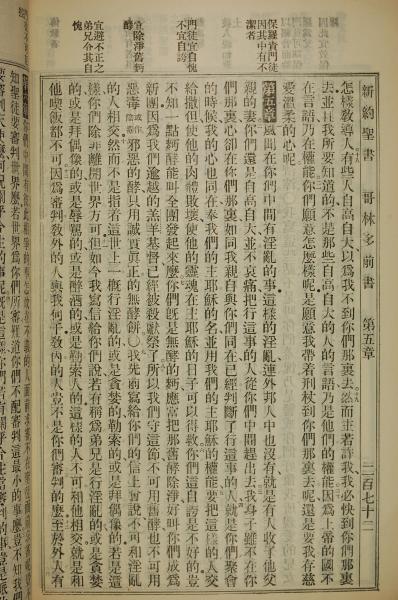 新約聖書 哥林多前書 第五章 二百七十二
保羅責門徒
因其中有不
潔者
門徒宜自愧
不宜自誇
宜除淨舊麪
酵
宜避不正之
弟兄令其自
愧
怎樣敎導人有些人自高自大以爲我不到你們那裏去然而主若許我我必快到你們那裏
去並且我所要知道的不是那些自高自大的人的言語乃是他們的權能因爲上帝的國不
在言語乃在權能你們願意怎麼樣呢是願意我帶着刑杖到你們那裏去呢還是要我存慈
愛溫柔的心呢
第五章 風聞在你們中間有淫亂的事這樣的淫亂連外邦人中也沒有就是有人收了他父
親的妻你們還是自高自大並不哀痛把行這事的人從你們中間趕出去我身子雖不在你
們那裏心卻在你們那裏如同我親自與你們同在已經判斷了行這事的人就是你們聚會
的時候我的心也同在奉我們的主耶穌的名並用我們的主耶穌的權能要把這樣的人交
給撒但使他的肉體敗壞使他的靈魂在主耶穌的日子可以得救你們這自誇是不好的豈
不知一點麪酵能叫全團發起來麼你們旣是無酵的麪應當把那舊酵除淨好叫你們成爲
新團因爲我們逾越的羔羊基督已經被殺獻祭了所以我們守這節不可用舊酵也不可用
惡毒邪惡的酵只用誠實眞正的無酵餅○我先前寫給你們的信上曾說不可和淫亂
的人相交然而不是指着這世上一槪行淫亂的或是貪婪的勒索的或是拜偶像的若是這
樣你們除非離開世界方可但如今我寫信給你們說若有稱爲弟兄是行淫亂的或是貪婪
的或是拜偶像的或是辱罵的或是醉酒的或是勒索人的這樣的人不可和他相交就是和
他喫飯都不可因爲審判敎外的人與我何干敎內的人豈不是你們審判的麼至於外人有